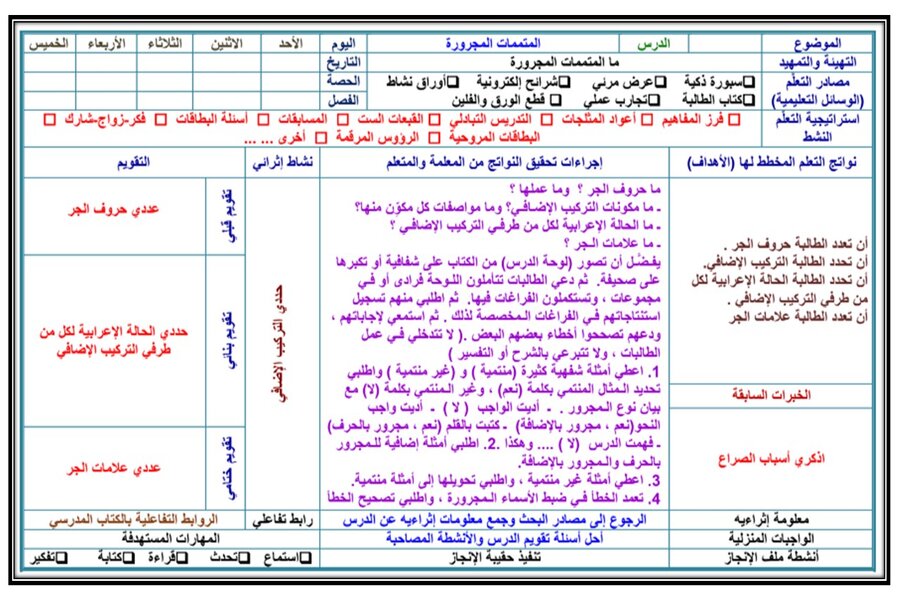 الموضوع المتممات المجرورة الدرس اليوم الأحد الاثنين الثلاثاء الأربعاء الخميس
التهيئة والتمهيد ما المتممات المجرورة التاريخ
مصادر التعلّم ❑سبورة ذكية ❑عرض مرئي ❑شرائح إلكترونية ❑أوراق نشاط الحصة
(الوسائل التعليمية) ❑كتاب الطالبة ❑تجارب عملي ❑ قطع الورق والفلين الفصل
استراتيجية التعلّم النشط □ فرز المفاهيم □ أعواد المثلجات □ التدريس التبادلي □ القبعات الست □ المسابقات □ أسئلة البطاقات □ فكر-زواج-شارك □
البطاقات المروحية □ الرؤوس المرقمة □ أخرى ... ...
نواتج التعلم المخطط لها (الأهداف) إجراءات تحقيق النواتج من المعلمة والمتعلم نشاط إثرائي التقويم
أن تعدد الطالبة حروف الجر .
أن تحدد الطالبة التركيب الإضافي.
أن تحدد الطالبة الحالة الإعرابية لكل
من طرفي التركيب الإضافي .
أن تعدد الطالبة علامات الجر
الخبرات السابقة
اذكري أسباب الصراع
ما حروف الجر ؟ وما عملها ؟
ـ ما مكونات التركيب الإضافي؟ وما مواصفات كل مكوّن منها؟
ـ ما الحالة الإعرابية لكل من طرفي التركيب الإضافي ؟
ـ ما علامات الجر ؟
يفضَّل أن تصور (لوحة الدرس) من الكتاب على شفافية أو تكبرها
على صحيفة. ثم دعي الطالبات تتأملون اللوحة فرادى أو في
مجموعات ، وتستكملون الفراغات فيها. ثم اطلبي منهم تسجيل
استنتاجاتهم في الفراغات المخصصة لذلك . ثم استمعي لإجاباتهم ،
ودعهم تصححوا أخطاء بعضهم البعض .( لا تتدخلي في عمل
الطالبات ، ولا تتبرعي بالشرح أو التفسير )
1. اعطي أمثلة شفهية كثيرة (منتمية ) و (غير منتمية ) واطلبي
تحديد المثال المنتمي بكلمة (نعم) ، وغير المنتمي بكلمة (لا) مع
بيان نوع المجرور . ـ أديت الواجب ( لا ) ـ أديت واجب
النحو(نعم ، مجرور بالإضافة) ـ كتبت بالقلم (نعم ، مجرور بالحرف)
ـ فهمت الدرس (لا ) .... وهكذا .2. اطلبي أمثلة إضافية للمجرور
بالحرف والمجرور بالإضافة.
3. اعطي أمثلة غير منتمية ، واطلبي تحويلها إلى أمثلة منتمية.
4. تعمد الخطأ في ضبط الأسماء المجرورة ، واطلبي تصحيح الخطأ
حددي التركيب الإضافي
تقويم قبلي
عددي حروف الجر
تقويم بنائي
حددي الحالة الإعرابية لكل من
طرفي التركيب الإضافي
تقويم ختامي
عددي علامات الجر
معلومة إثراءيه الرجوع إلى مصادر البحث وجمع معلومات إثراءيه عن الدرس رابط تفاعلي الروابط التفاعلية بالكتاب المدرسي
الواجبات المنزلية أحل أسئلة تقويم الدرس والأنشطة المصاحبة المهارات المستهدفة
أنشطة ملف الإنجاز تنفيذ حقيبة الإنجاز ❑استماع ❑تحدث ❑قراءة ❑كتابة ❑تفكير